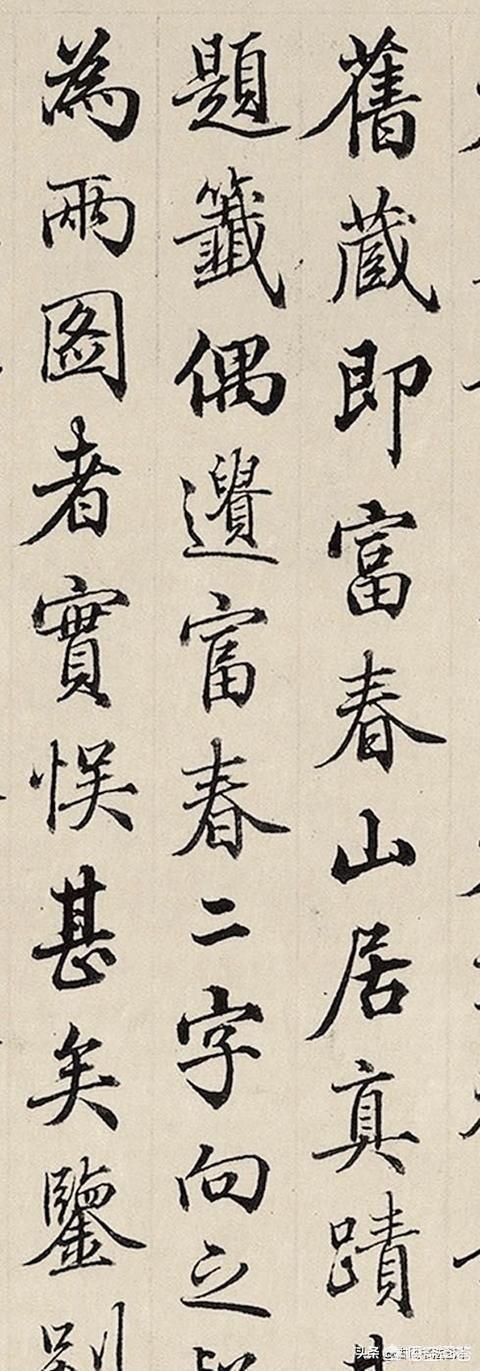 舊蔵即富春山居真蹟
題籤偶遺富春二字向之
為兩圖者實悮甚矣鑒別
头条